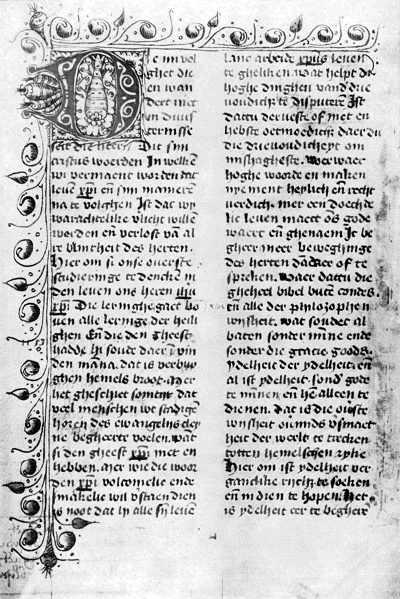 Die mi vol
ghet die
en wan
dert niet
in duus
ternisse
seit die heere / Dit sin
cristus woerden In welkē
wi vermaent worden dat
leuē xpi eñ sin maniere
na te volghen Ist dat wy
warachtelike vlicht willē
werden eñ verlost vā al
re blintheit des herten.
Hier om si onse ouerste
studieringe te dencken in
den leuen ons heren ihu
xpi Die leringhe gaet bo
uen alle leringe der heili
ghen Eñ die den gheest
hadde hi soude daer
den māna. dat is
ghen hemels broot. Mer
het ghesciet somtijt dat
veel menschen stadigen
horen des ewangelis cley
ne begheerte voelen. wāt
si den gheest xpi niet en
hebben. Mer wie die woor
den xpi volcomelic ende
smakelic wil dien
is noot dat hi alle sijn leuē
xpūs leuen
te ghelikē. wat helpt di
hoghe dinghen vand' drie
voudich' te disputeren Ist
dattu derueste of met en
hebste oetmoedich' daer du
die drievoudicheyt om
mishagheste. Voer waer
hoghe woorde en makē
nyement heylich eñ recht
uerdich. mer een doechde
lic leuen maect ōs gode
waert eñ ghenaem Ic be
gheer meer beweghinge
des herten of te
spreken. Waer dattu die
gheheel bibel buten cōdes.
eñ alle der philozophen
wijsheit. wat soudet al
baten sonder mine ende
sonder die gracie goods.
ydelheit der ydelheit. eñ
al ist ydelheit sond' gode
te minen eñ hē alleen te
dienen. Dat is die ouste
wijsheit ouermids vsmaet
heit der werlt te trecken
totten hemelschen rijke
Hier om ist ydelheit ver
ganclike rijch' te soekē
eñ in dien te hopen. Het
is ydelheit eer te begherē